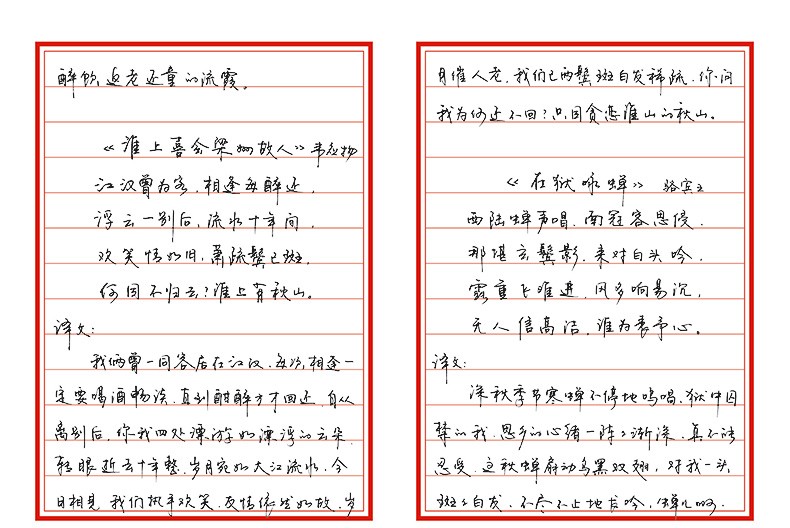 醉饮返老还童的流霞。
《淮上喜会梁州故人》韦应物
江汉曾为客,相逢每醉还,
浮云一别后,流水十年间,
欢笑情如旧,萧疏鬓已斑,
何因不归去?淮上有秋山。
译文:
我俩曾一同客居在江汉,每次相逢一
定要喝酒畅谈,直到酣醉方才回还,自从
离别后,你我四处漂游如漂浮的云朵,
转眼近去十年整,岁月宛如大江流水,今
日相见,我们执手欢笑,友情依然如故,岁
月催人老,我们已两鬓斑白发稀疏,你问
我为何还不回?只因贪恋淮山的秋山。
《在狱咏蝉》骆宾王
西陆蝉声唱,南冠客思侵,
那堪玄鬓影,来对白头吟,
露重飞难进,风多响易沉,
无人信高洁,谁为表予心。
译文:
深秋季节寒蝉不停地鸣唱,狱中囚
禁的我,思乡的心绪一阵々渐深,真不能
忍受,这秋蝉扇动乌黑双翅,对我一头
斑々白发,不尽不止地长吟,蝉儿啊,